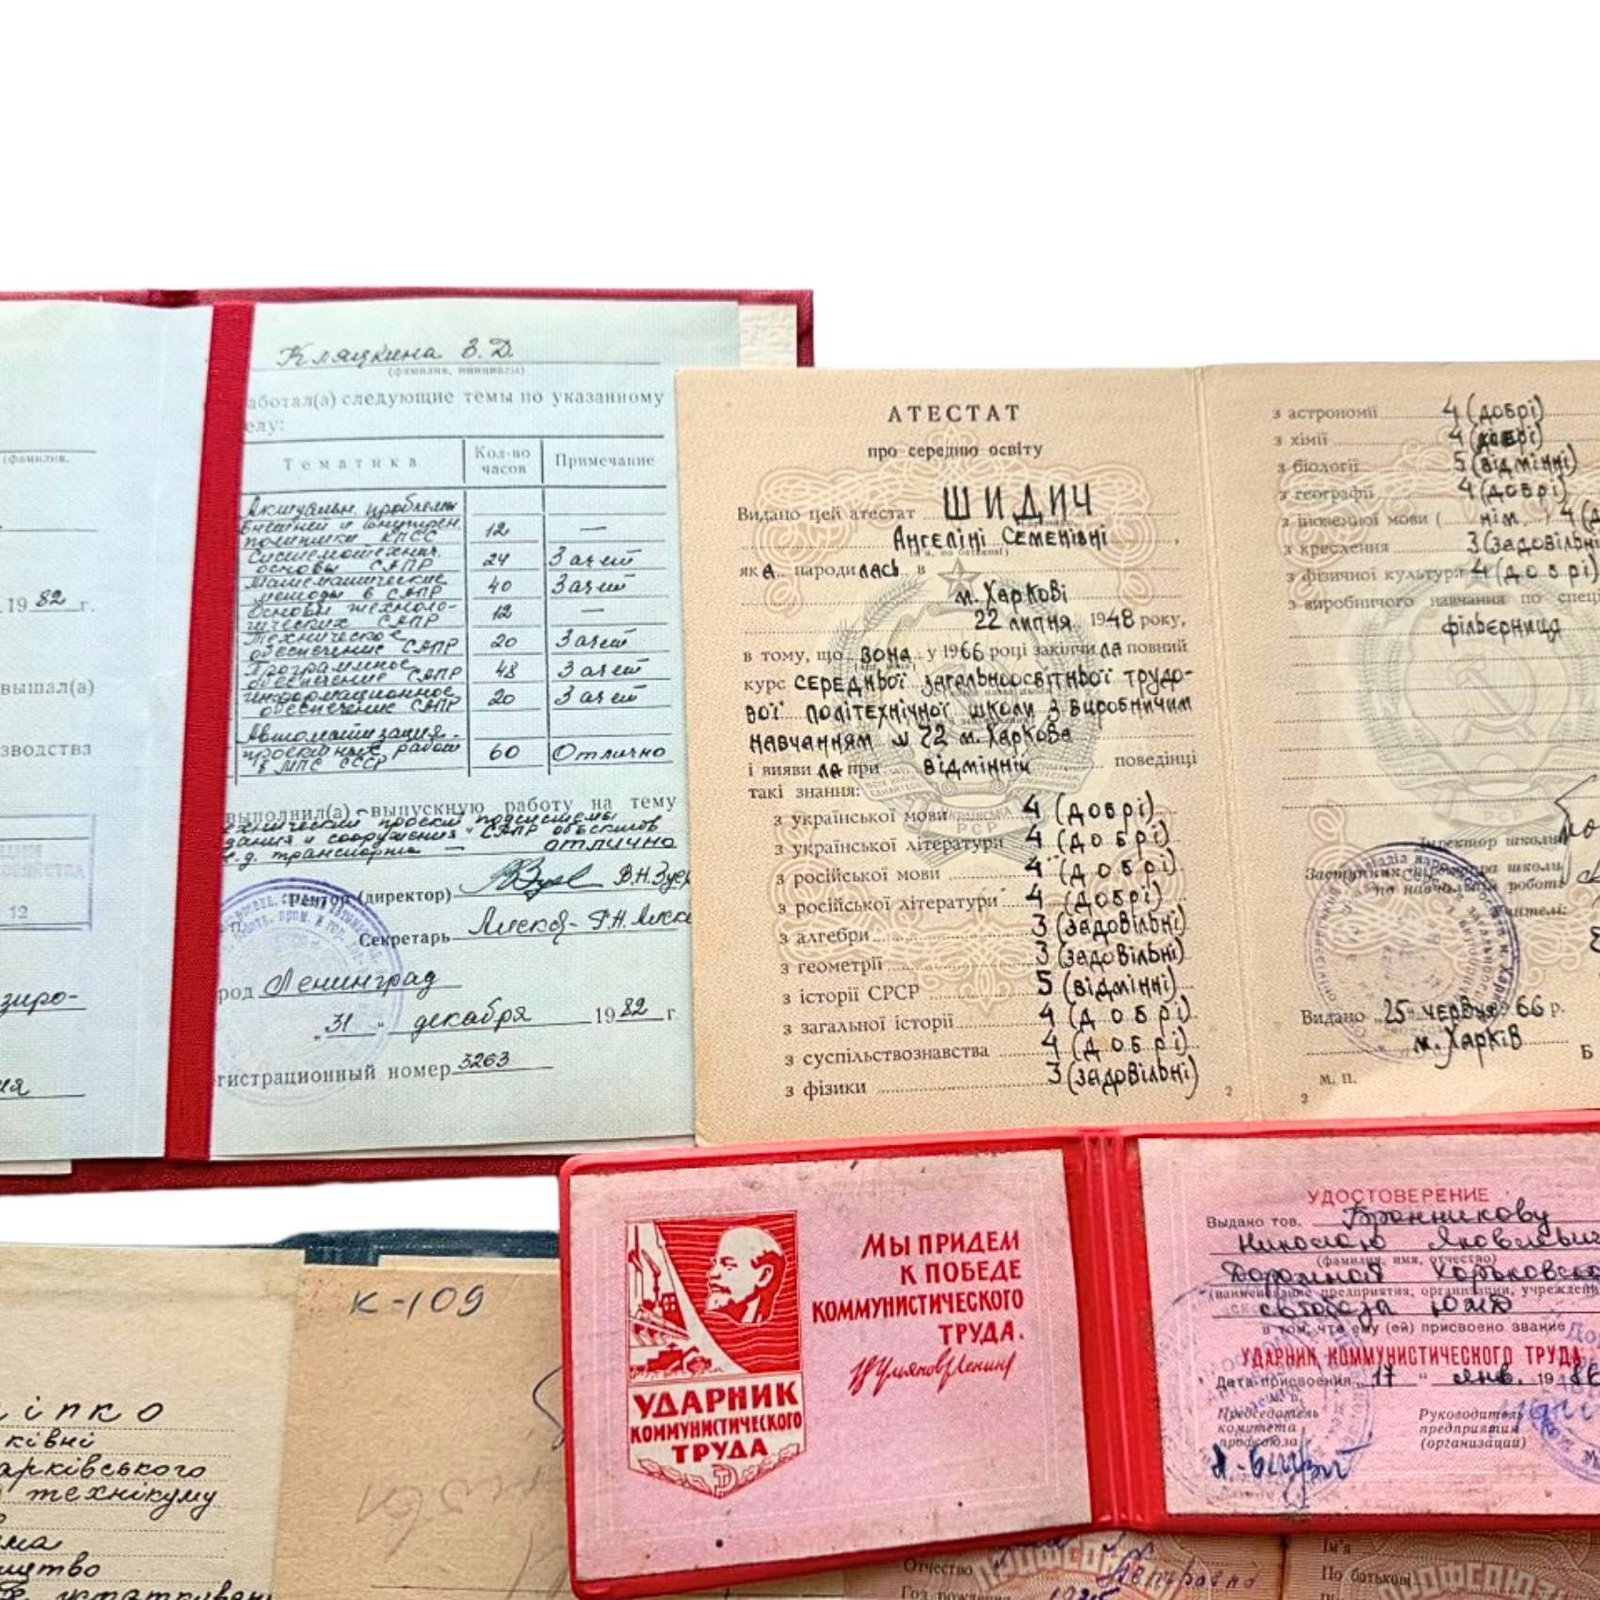 (фамилия,
19 82 г.
вышал(а)
зводства
12
Кляцкина З.Д.
(фамилия, инициалы)
аботал(а) следующие темы по указанному
елу:
Тематика Кол-во часов Примечание
Актуальн. проблемы
внешней и внутрен.
политики КПСС 12 —
Системотехнич.
основы САПР 24 Зачет
Математические
методы в САПР 40 Зачет
Основы техноло-
гических САПР 12 —
Техническое
обеспечение САПР 20 Зачет
Программное
обеспечение САПР 48 Зачет
Информационное
обеспечение САПР 20 Зачет
Автоматизация
проектных работ
в МПС СССР 60 Отлично
выполнил(а) выпускную работу на тему
технический проект подсистемы
здания и сооружения" САПР объектов
ж.д. транспорта — отлично
Ректор (директор) В.Н.Зуе
Секретарь
род Ленинград
"31" декабря 1982 г
гистрационный номер 3263
АТЕСТАТ
про середню освіту
Видано цей атестат ШИДИЧ
Ангеліні Семенівні
яка народилась в
м. Харкові
22 липня 1948 року,
в тому, що вона у 1966 році закінчила повний
курс середньої загальноосвітньої трудо-
вої політехнічної школи з виробничим
навчанням № 72 м. Харкова
і виявила при відмінній поведінці
такі знання:
з української мови 4 (добрі)
з української літератури 4 (добрі)
з російської мови 4 (добрі)
з російської літератури 4 (добрі)
з алгебри 3 (задовільні)
з геометрії 3 (задовільні)
з історії СРСР 5 (відмінні)
з загальної історії 4 (добрі)
з суспільствознавства 4 (добрі)
з фізики 3 (задовільні)
2
з астрономії 4 (добрі)
з хімії 4 (добрі)
з біології 5 (відмінні)
з географії 4 (добрі)
з іноземної мови ( нім. ) 4 (д
з креслення 3 (задовільні
з фізичної культури 4 (добрі)
з виробничого навчання по спеці
Директор школи
Заступник директора школи
по навчальній роботі
Учителі:
Видано "25" червня 66 р.
м. Харків
Б
м. п.
3
УДАРНИК
КОММУНИСТИЧЕСКОГО
ТРУДА
МЫ ПРИДЕМ
К ПОБЕДЕ
КОММУНИСТИЧЕСКОГО
ТРУДА.
В Ульянов (Ленин)
УДОСТОВЕРЕНИЕ
Выдано тов. Бронникову
Николаю Яковлевич
(фамилия, имя, отчество)
Дорожная Харьковско
(наименование предприятия, организации, учрежден
автобаза ЮЖД
в том, что ему (ей) присвоено звание
УДАРНИК КОММУНИСТИЧЕСКОГО ТРУДА
Дата присвоения "17" янв. 1986
Председатель
комитета
профсоюза
Руководитель
предприятия
(организации)
К-109
ківні
арківського
технікуму
Отчество Петровна
Год рождения
Ім'я
По батькові